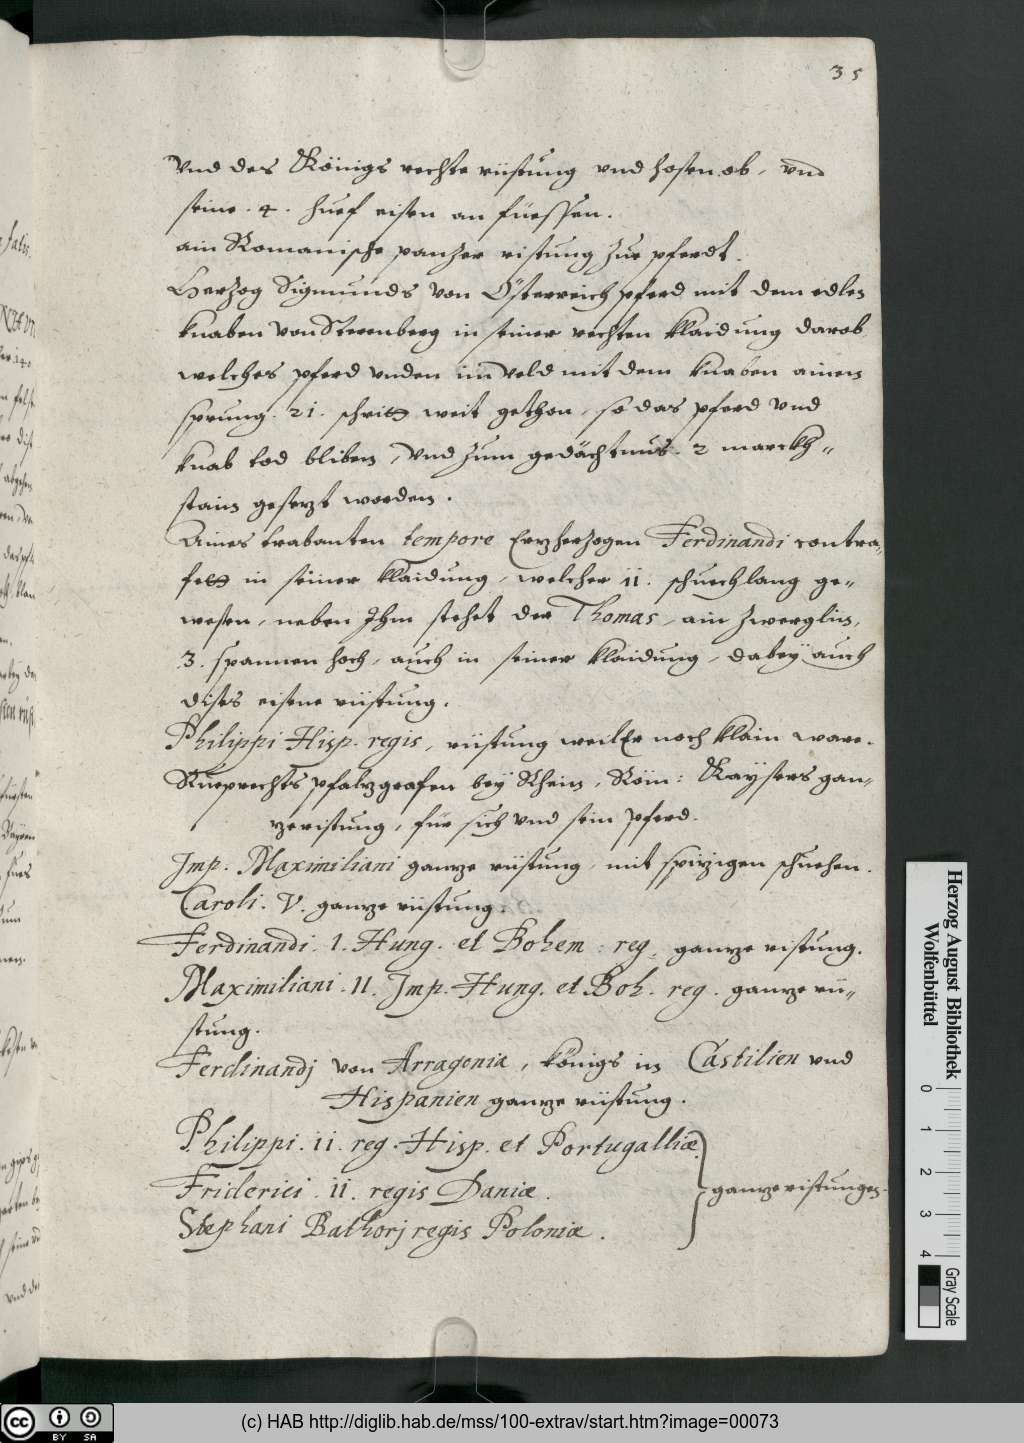 35
vnd des Königs rechte rüstung vnd hosen ob, vnd
seine .4. huef eisen an füessen.
ain Romanische panzer ristung zue pferdt.
Herzog Sigmunds von Österreich pferd mit dem edlen
knaben von Sterenberg in seiner rechten klaidung darob
welches pferd vnden im veld mit dem knaben ainen
sprung .21. schritt weit gethon, so das pferd vnd
knab tod bliben, vnd zum gedächtnus .2 marckh=
stain gesetzt worden.
Aines trabanten tempore Erzherzogen Ferdinandi contra=
fett in seiner klaidung, welcher 11. schuech lang ge=
wesen, neben Ihm stehet der Thomas, ain zwerglin,
3. spannen hoch, auch in seiner klaidung, dabeÿ auch
dises eisene rüstung.
Philippi Hisp. regis, rüstung weil Er noch klain ware.
Rueprechts pfalzgrafen beÿ Rhein, Röm: Kaÿsers gan=
ze ristung, für sich vnd sein pferd.
Imp. Maximiliani ganze rüstung, mit spizigen schuehen.
Caroli. V. ganze rüstung.
Ferdinandi. I. Hung. et Bohem: reg. ganze ristung.
Maximiliani. II. Imp. Hung. et Boh. reg. ganze rü=
stung.
Ferdinandj von Arragonia, königs in Castilien vnd
Hispanien ganze rüstung.
Philippi. ii. reg. Hisp. et Portugalliæ.
Friderici. ii. regis Daniæ.
Stephani Bathorj regis Poloniæ.
ganze ristungen.
Herzog August Bibliothek
Wolfenbüttel
0 1 2 3 4
Gray Scale
cc BY SA
(c) HAB http://diglib.hab.de/mss/100-extrav/start.htm?image=00073